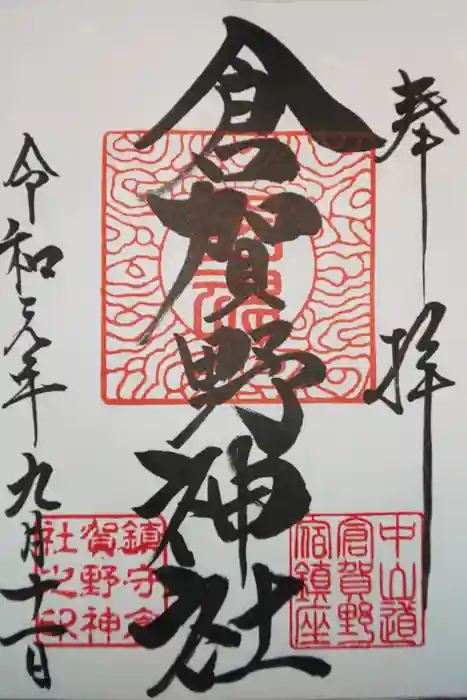 奉拝
中山道
倉賀野
宿鎮座
倉賀野神社
鎮守倉
賀野神
社之印
令和元年九月十一日